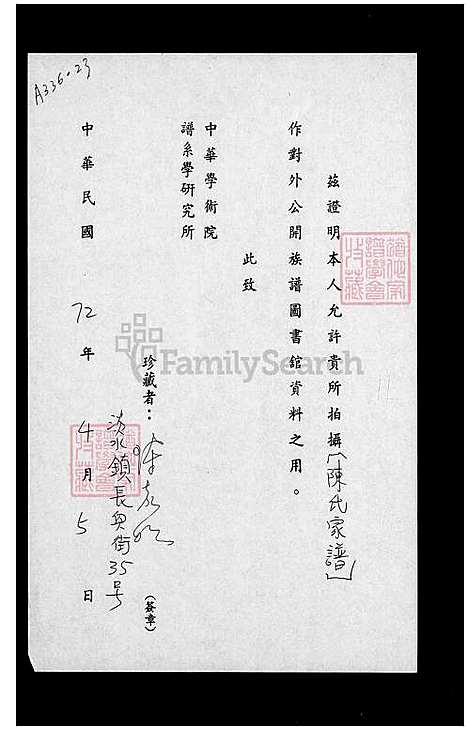 A336-23
茲證明本人允許貴所拍攝「陳氏家譜」
作對外公開族譜圖書館資料之用。
此致
中華學術院
譜系學研究所
珍藏者：陳
(簽章)
淡水鎮長興街35号
中華民國72年4月5日
FamilySearch